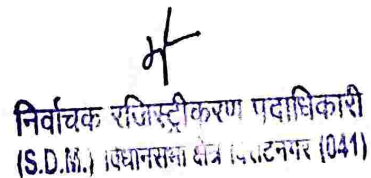 निर्वाचक रजिस्ट्रीकरण पदाधिकारी
(S.D.M.) विधानसभा क्षेत्र विराटनगर (041)